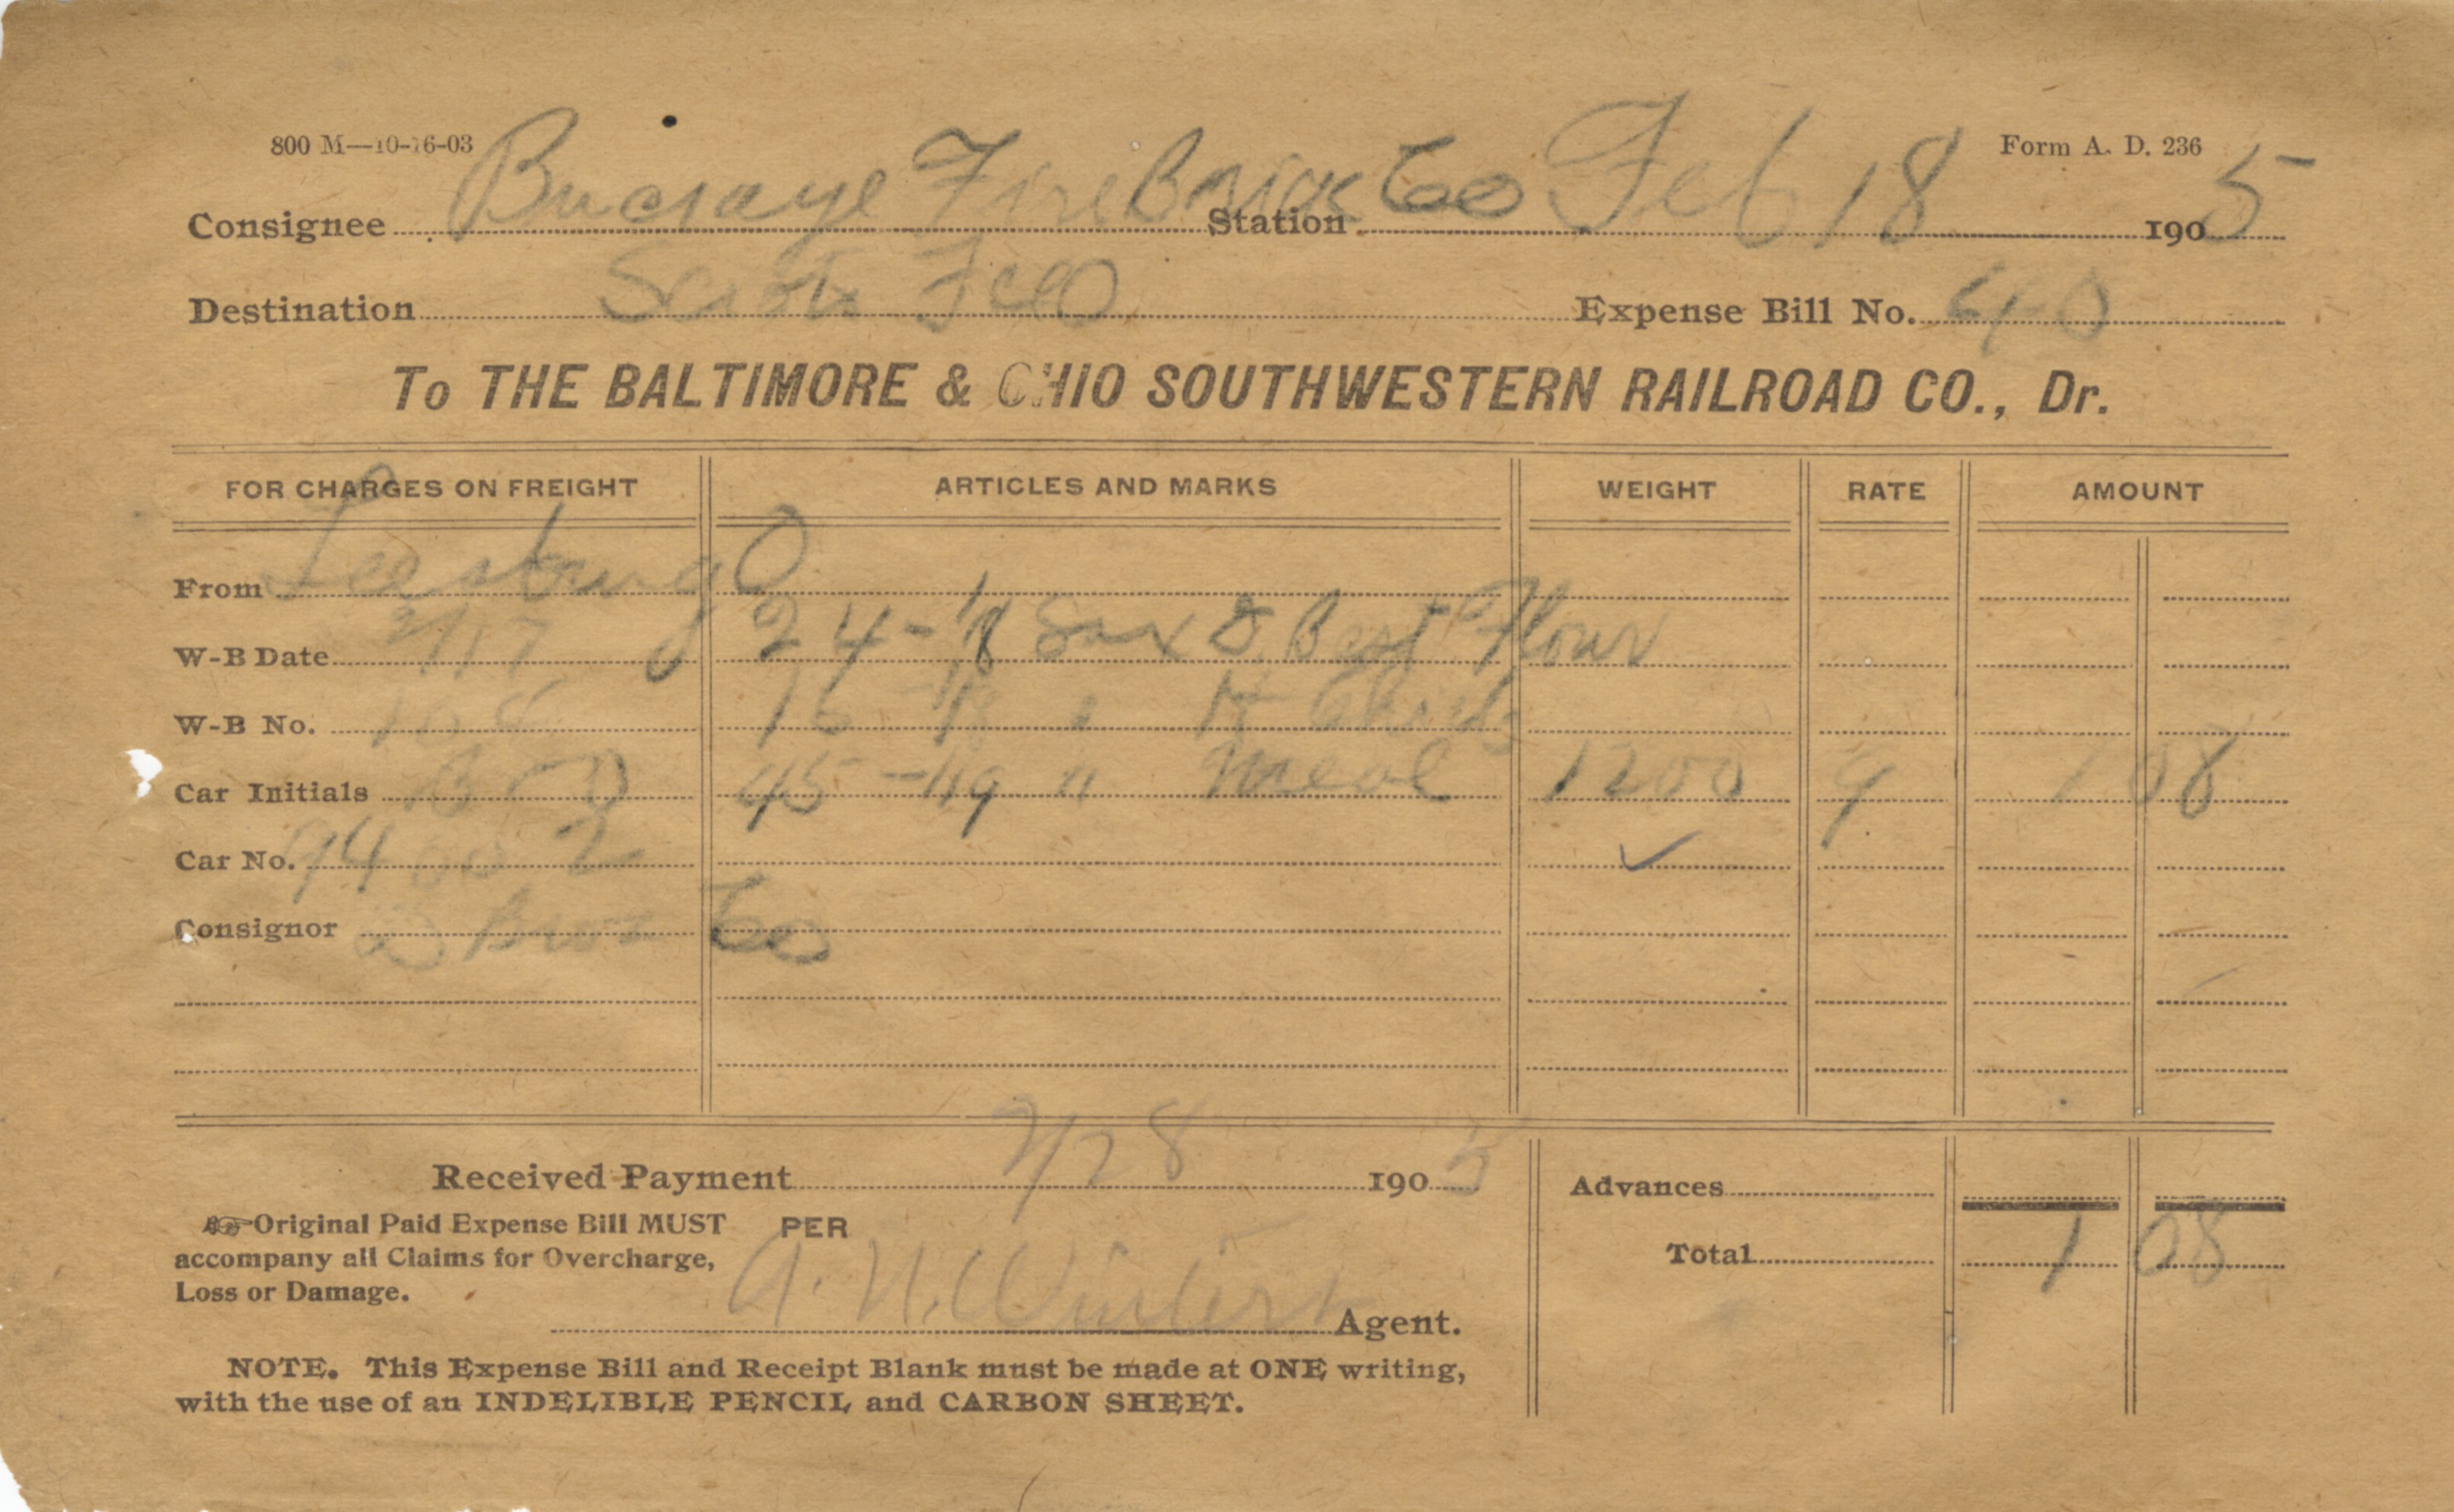 800 M—10-16-03
Form A. D. 236
Consignee Buckaye Fire Brick Co Station Feb 18 1905
Destination Scioto Fce O Expense Bill No. 40
To THE BALTIMORE & OHIO SOUTHWESTERN RAILROAD CO., Dr.
FOR CHARGES ON FREIGHT ARTICLES AND MARKS WEIGHT RATE AMOUNT
From Leesburg O
W-B Date 2/17 24-1/8 Sax S Best Flour
W-B No. 15 -1/8 "
Car Initials B O 45 - " Meal 1200 9 1 08
Car No. ✓
Consignor Bros Co
Received Payment 2/28 1905 Advances
☞Original Paid Expense Bill MUST PER
accompany all Claims for Overcharge,
Total 1 08
Loss or Damage.
A. N. Winters Agent.
NOTE. This Expense Bill and Receipt Blank must be made at ONE writing,
with the use of an INDELIBLE PENCIL and CARBON SHEET.